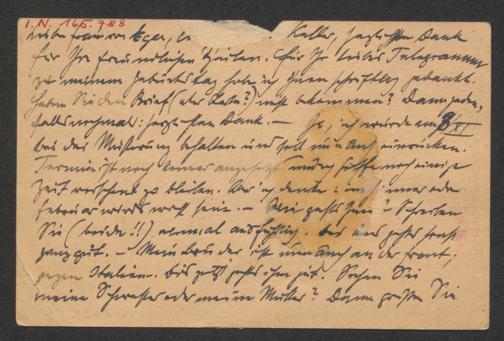 I.N. 165.788
Liebe Frau von Eger, Keller, herzlichsten Dank
für Ihre freundlichen Zeilen. Für Ihr liebes Telegramm
zu meinem Geburtstag habe ich Ihnen schriftlich gedankt.
Haben Sie den Brief (oder Karte?) nicht bekommen? Dann jeden-
falls nochmals: herzlichsten Dank. — Ja, ich wurde am 8/XI
bei der Musterung behalten und soll nun auch einrücken.
Termin ist noch keiner angesetzt und ich hoffe noch einige
Zeit verschont zu bleiben. Aber ich denke: Jänner oder
Februar wird's wohl sein. — Wie geht's Ihnen? Schreiben
Sie (beide!!) einmal ausführlich. Bei uns geht's sonst
ganz gut. — Mein Bruder ist nun auch an der Front;
gegen Italien. Bis jetzt geht's ihm gut. Sehen Sie
meine Schwester oder meine Mutter? Dann grüßen Sie